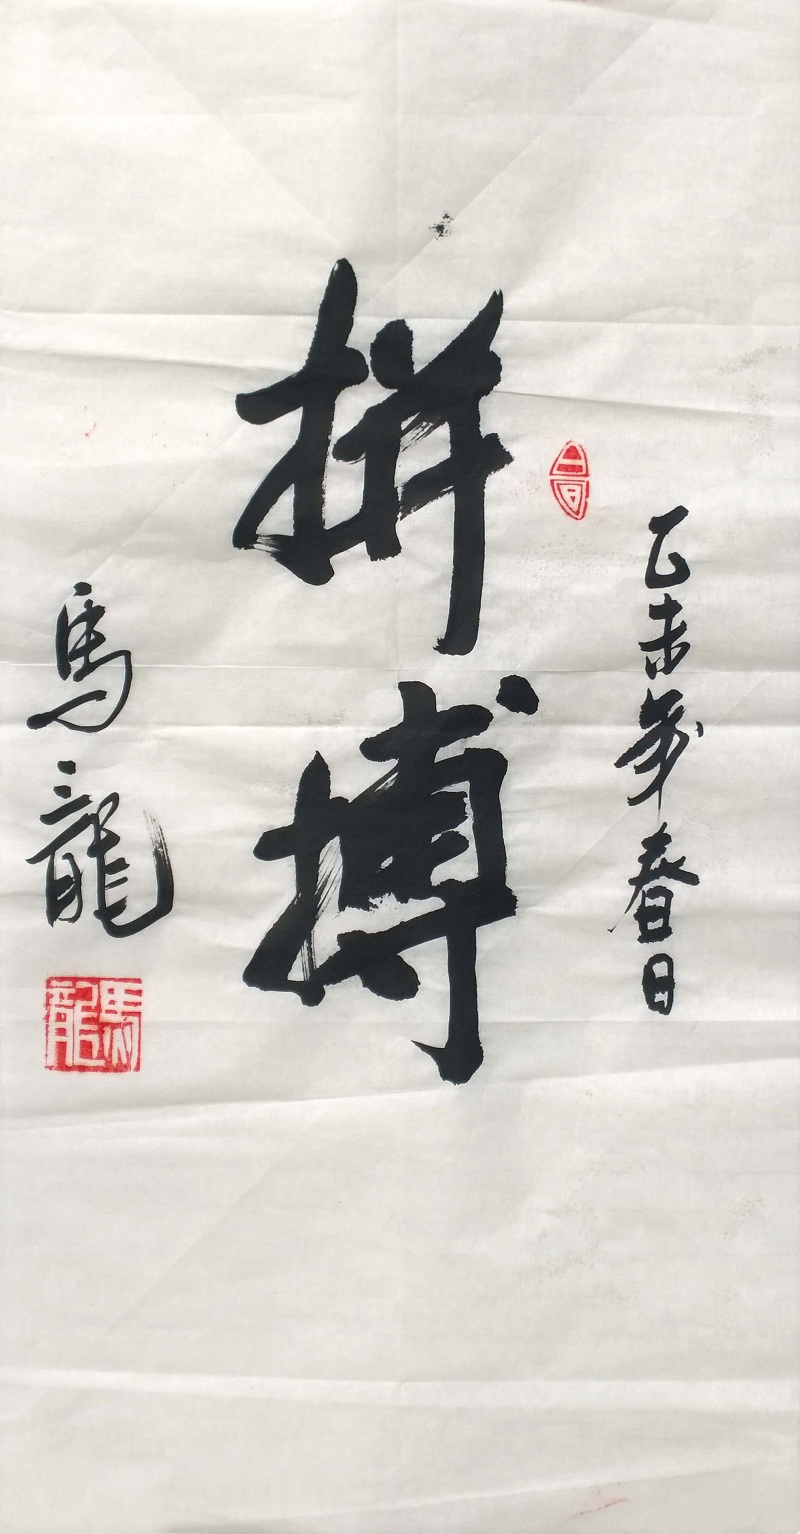 乙未年春日
拼搏
馬龍
馬龍